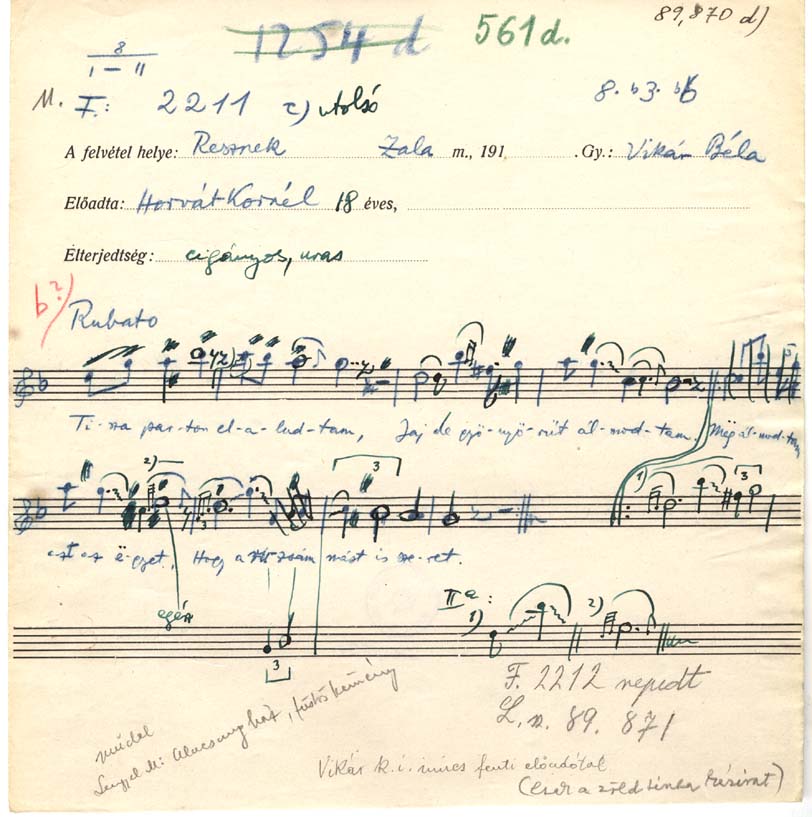 8
I - II
1254 d
561 d.
89,870 d)
M. F.: 2211 c) utolsó
8. b3. b6
A felvétel helye: Resznek Zala m., 191 . Gy.: Vikár Béla
Előadta: Horvát Kornél 18 éves,
Elterjedtség: cigányos, uras
b?)
Rubato
Ti-sza par-ton el-a-lud-tam, Jaj de gyö-nyö-rűt ál-mod-tam. Még ál-mod-tam
2) 3 1) 3
azt az é-gzet, Hogy a rózsám mást is sze-ret.
egész
II a:
1) 2)
3
F. 2212 repedt
L. n. 89. 871
műdal
Lengyel M: Alacsony ház, füstös kémény
Vikár k.i. nincs fenti előadótól
(csak a zöld tinta kézirat)